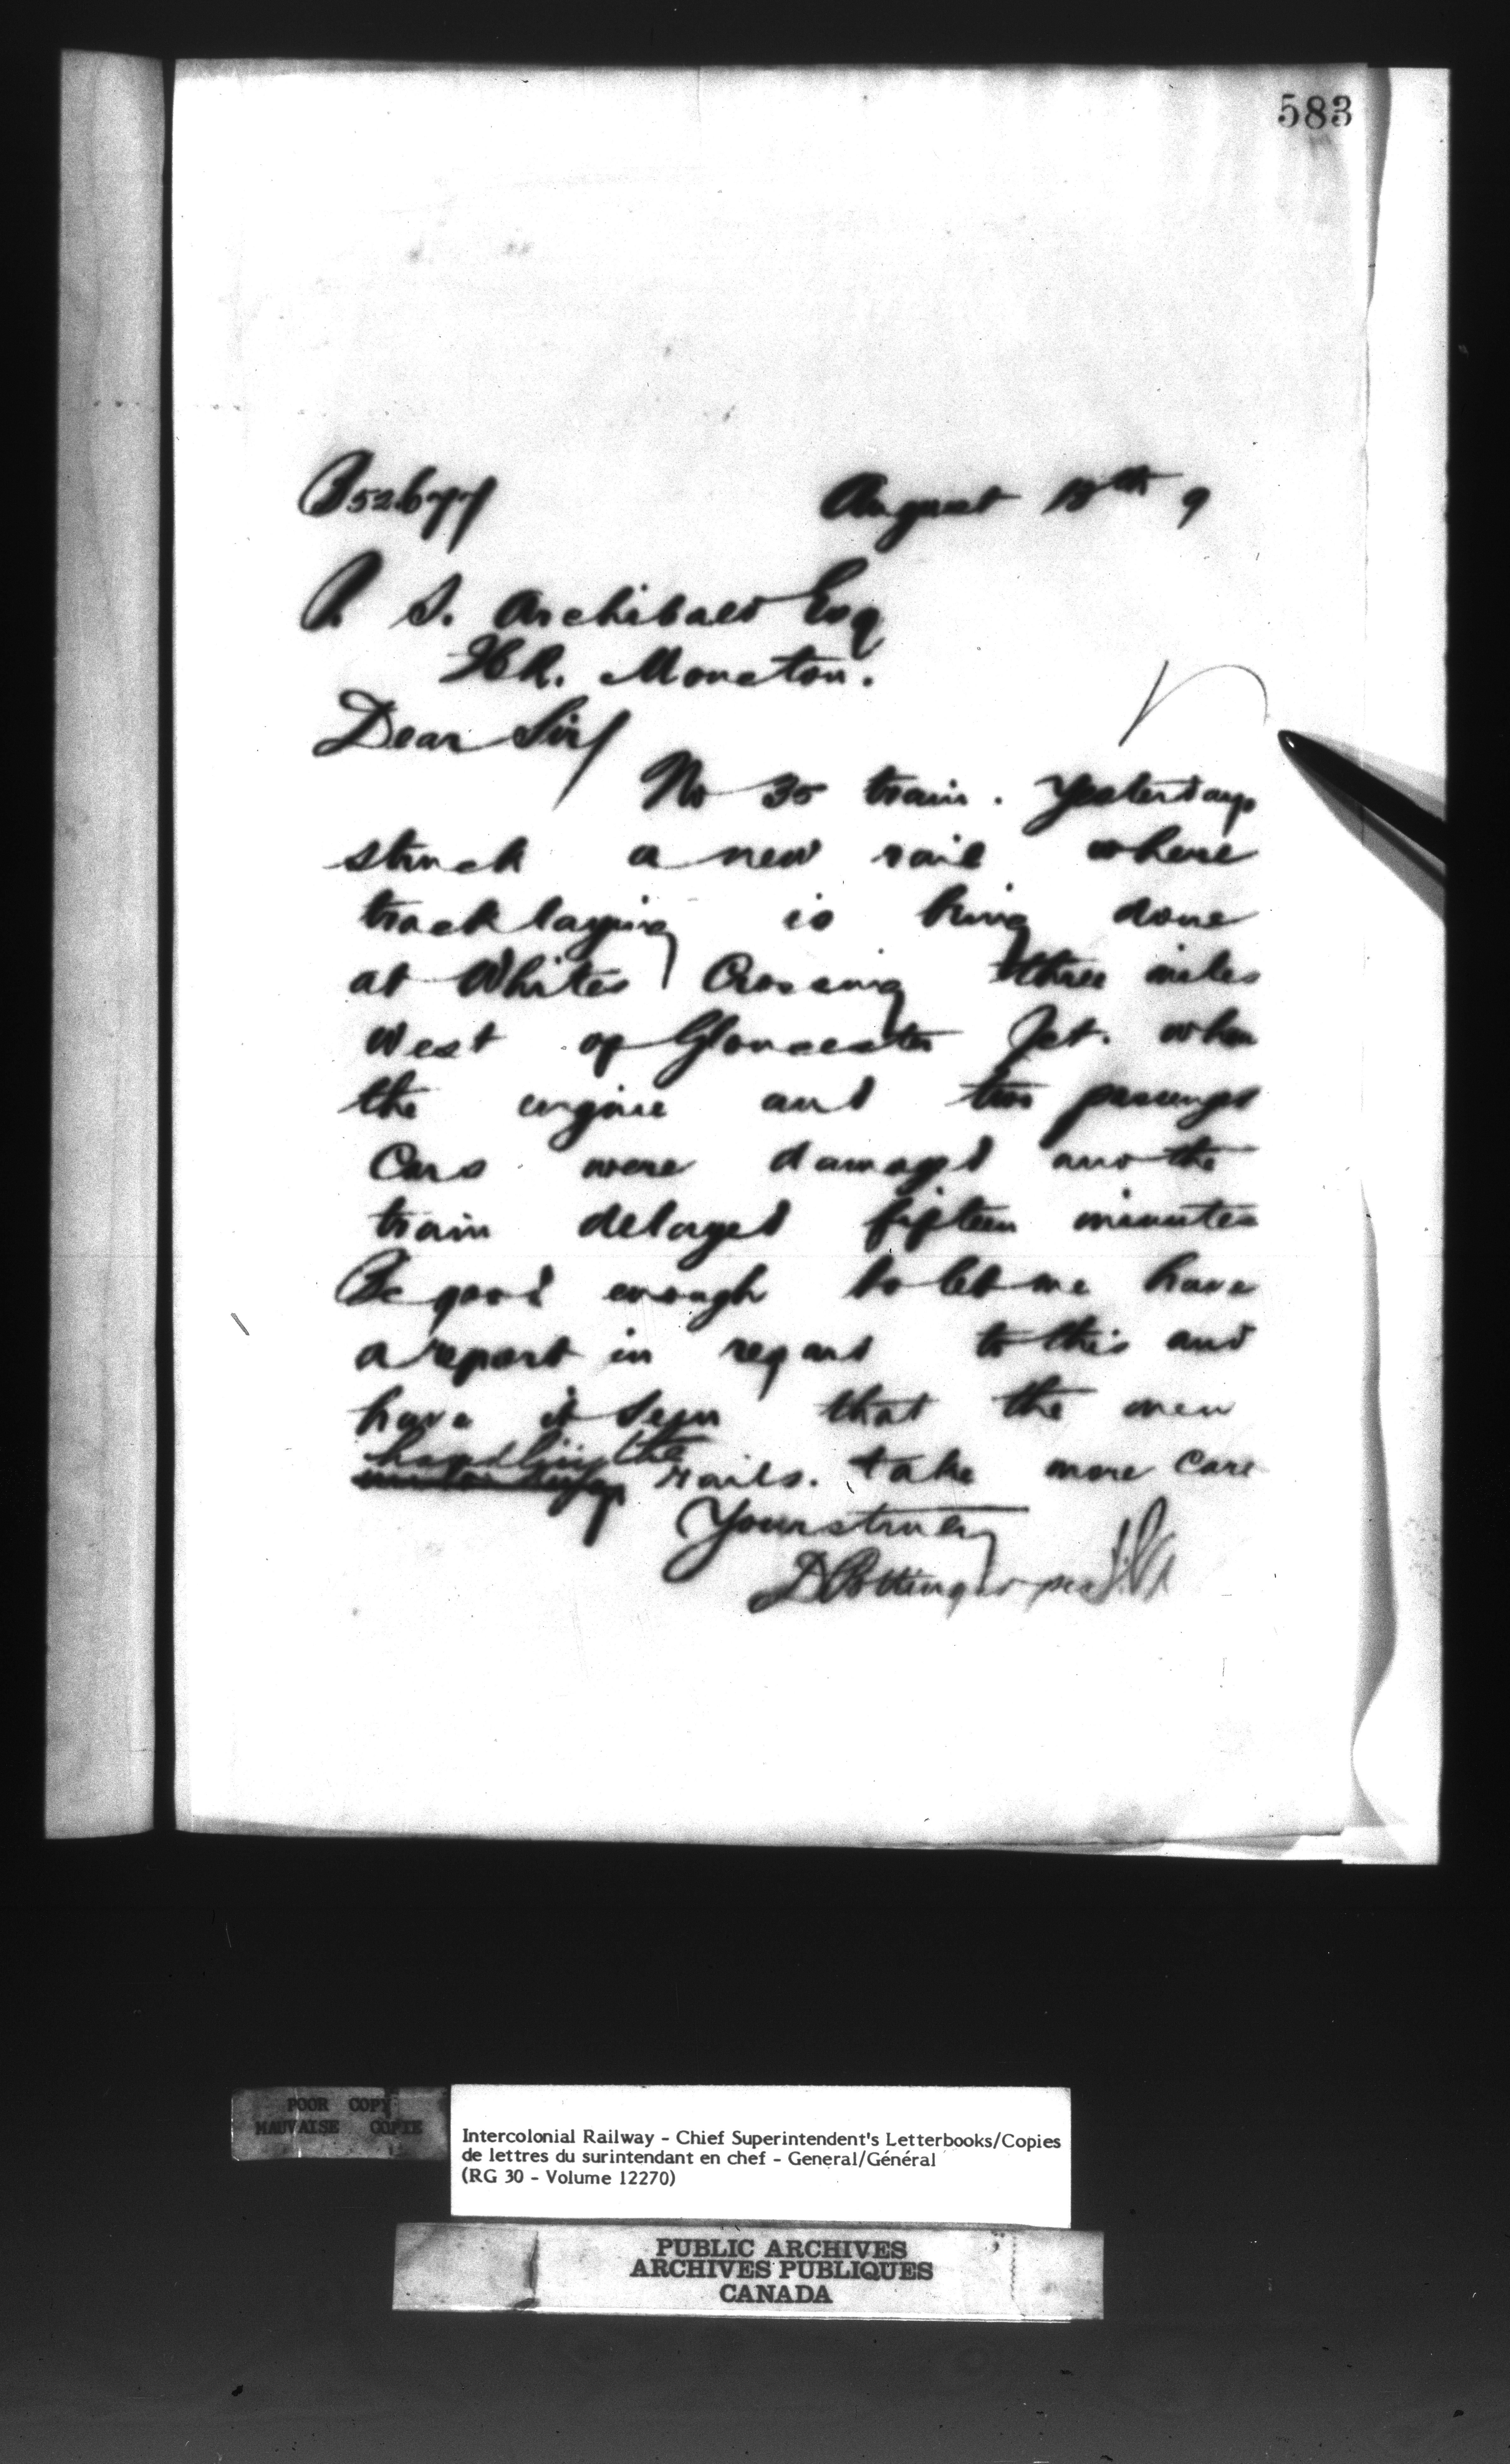 583
B52677 August 13th 9
P. S. Archibald Esq
ICR. Moncton.
Dear Sir/
No 35 train. Yesterday
struck a new rail where
track laying is being done
at Whites Crossing three miles
west of Gloucester Jct. when
the engine and two passenger
Cars were damaged and the
train delayed fifteen minutes
Be good enough to let me have
a report in regard to this and
have it seen that the men
handling the
rails. take more care
Yours truly
D Pottinger per
POOR COPY
MAUVAISE COPIE
Intercolonial Railway - Chief Superintendent's Letterbooks/Copies
de lettres du surintendant en chef - General/Général
(RG 30 - Volume 12270)
PUBLIC ARCHIVES
ARCHIVES PUBLIQUES
CANADA